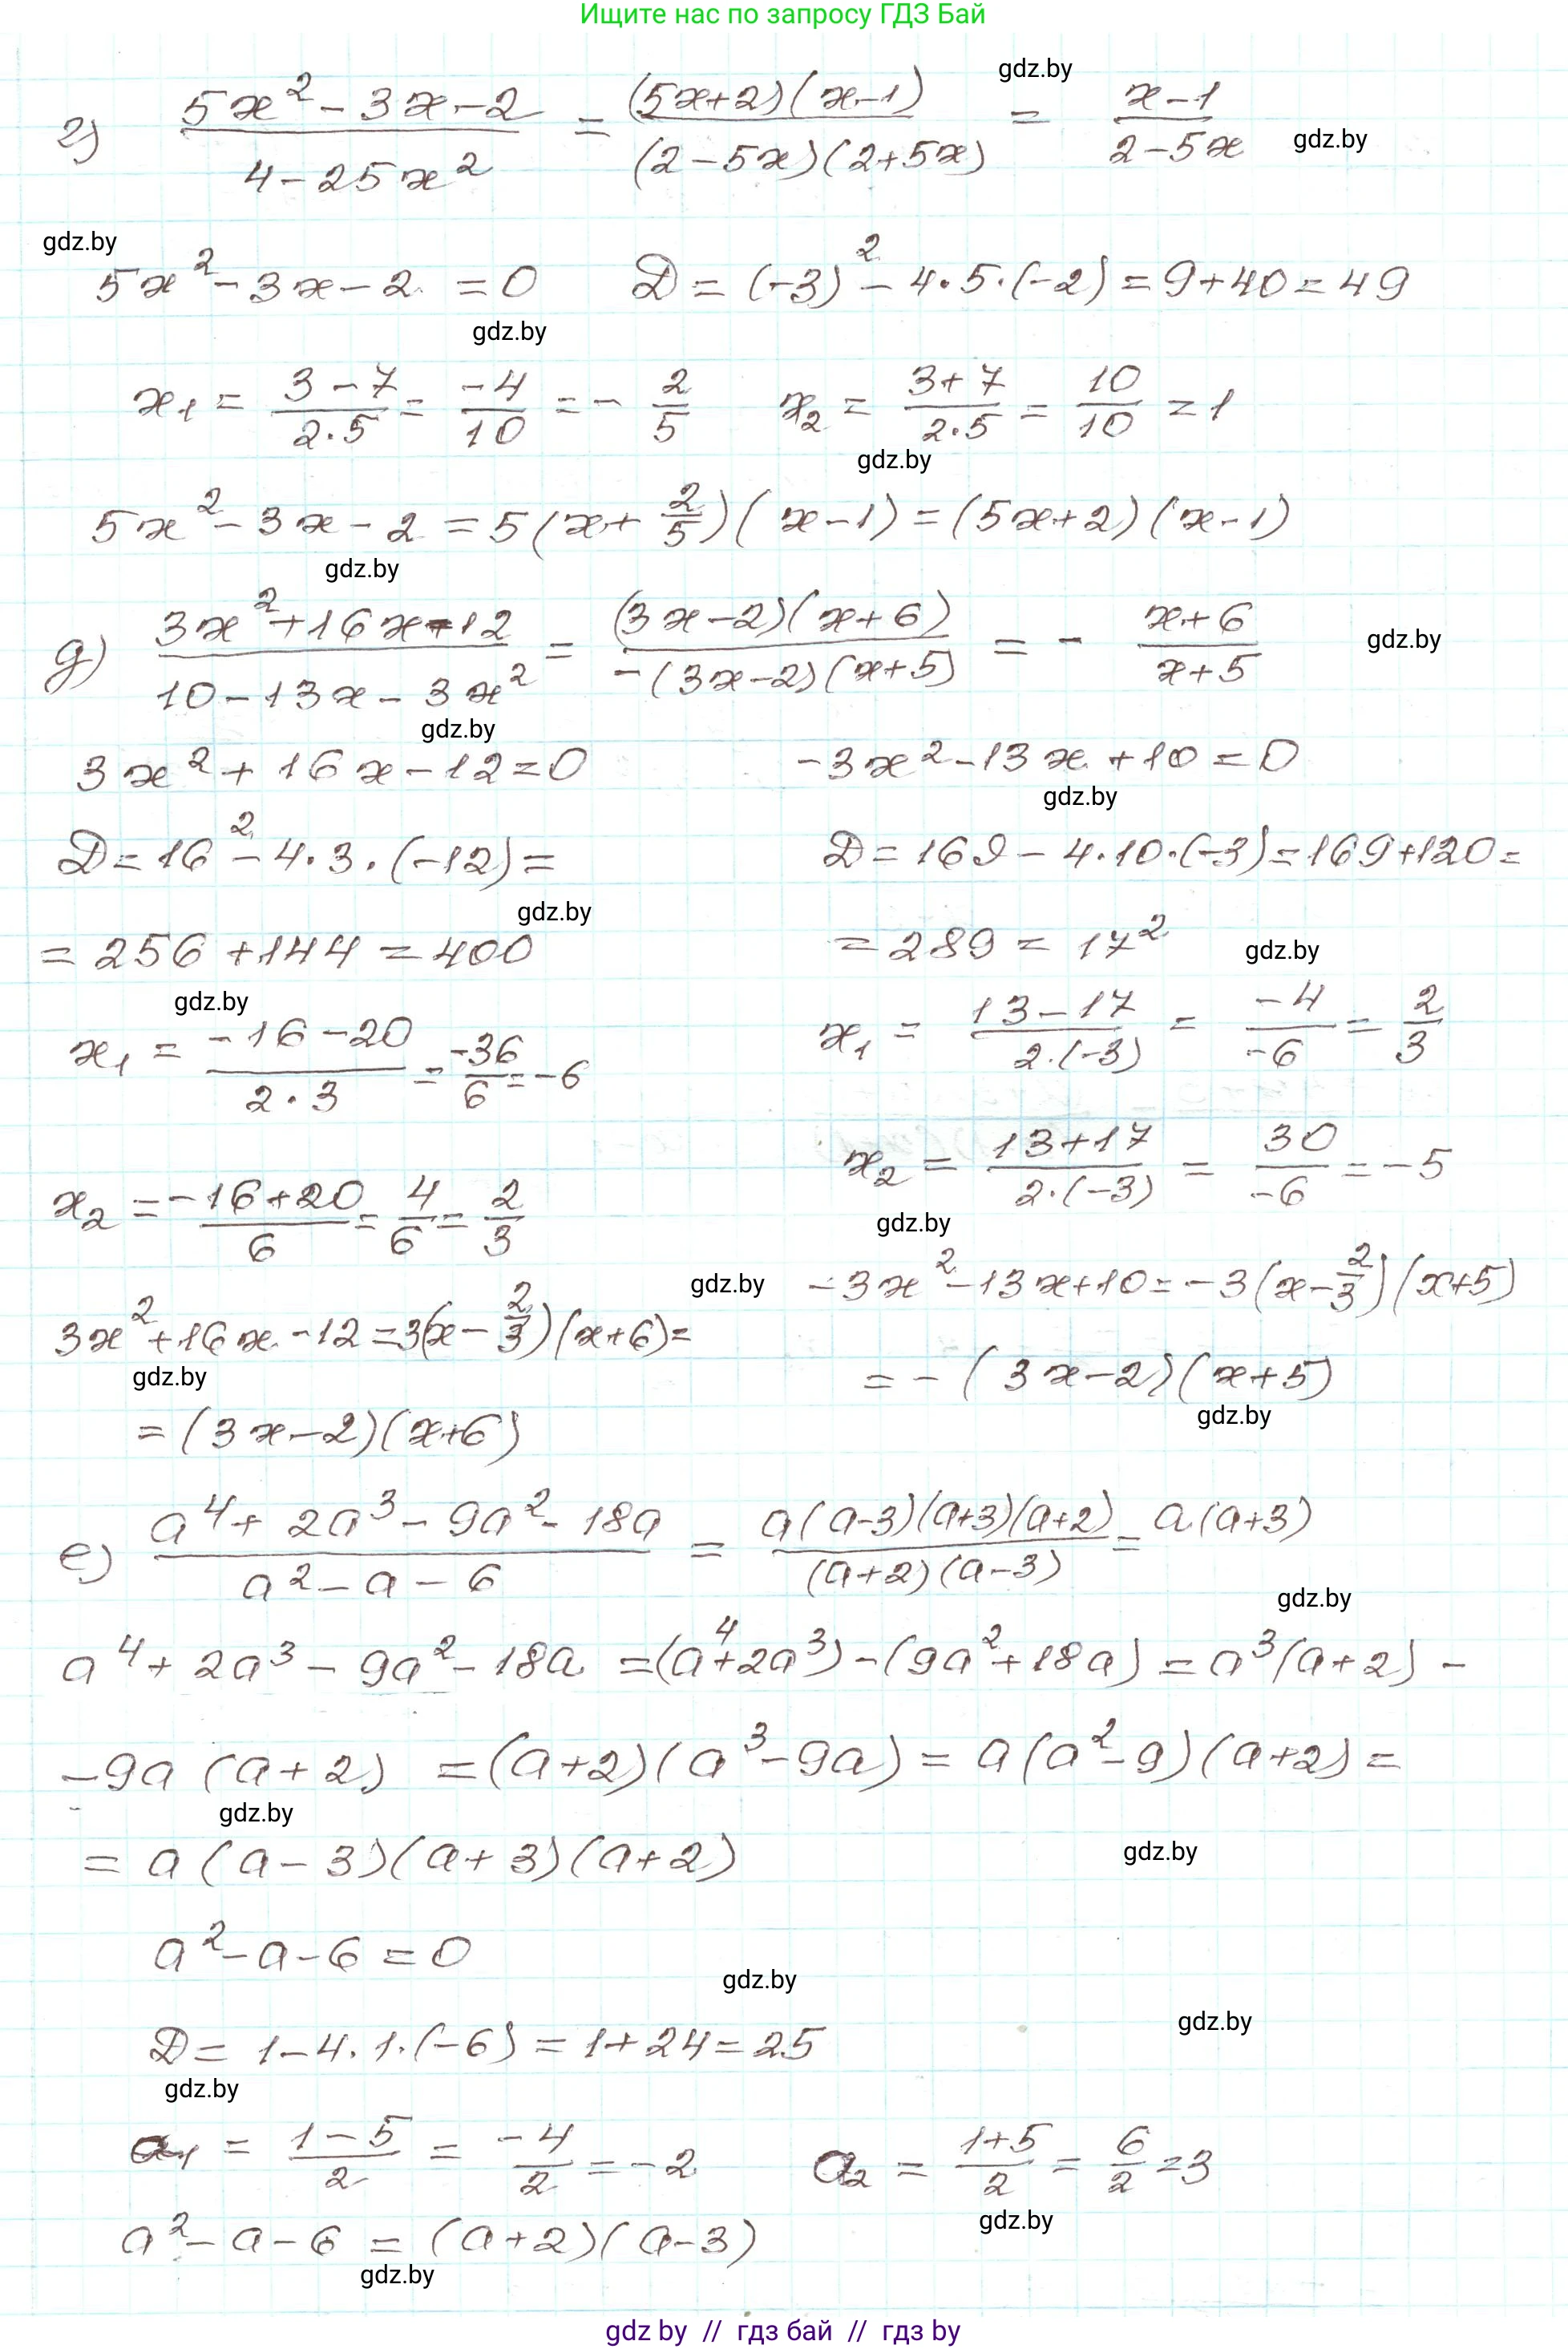 Ищите нас по запросу ГДЗ Бай
gdz.by
г) (5x² - 3x - 2)/(4 - 25x²) = ((5x+2)(x-1))/((2-5x)(2+5x)) = (x-1)/(2-5x)
gdz.by
gdz.by
5x² - 3x - 2 = 0 D = (-3)² - 4·5·(-2) = 9+40 = 49
gdz.by
x₁ = (3-7)/(2·5) = -4/10 = - 2/5 x₂ = (3+7)/(2·5) = 10/10 = 1
gdz.by
5x² - 3x - 2 = 5(x + 2/5)(x-1) = (5x+2)(x-1)
gdz.by
д) (3x² + 16x - 12)/(10 - 13x - 3x²) = ((3x-2)(x+6))/(-(3x-2)(x+5)) = - (x+6)/(x+5)
gdz.by
gdz.by
3x² + 16x - 12 = 0 -3x² - 13x + 10 = 0
gdz.by
D = 16² - 4·3·(-12) = D = 169 - 4·10·(-3) = 169+120 =
gdz.by
= 256 + 144 = 400 = 289 = 17²
gdz.by
gdz.by
x₁ = (-16-20)/(2·3) = -36/6 = -6 x₁ = (13-17)/(2·(-3)) = -4/-6 = 2/3
x₂ = (-16+20)/6 = 4/6 = 2/3 x₂ = (13+17)/(2·(-3)) = 30/-6 = -5
gdz.by
gdz.by
3x² + 16x - 12 = 3(x - 2/3)(x+6) = -3x² - 13x + 10 = -3(x - 2/3)(x+5)
gdz.by
= (3x-2)(x+6) = -(3x-2)(x+5)
gdz.by
е) (a⁴ + 2a³ - 9a² - 18a)/(a² - a - 6) = (a(a-3)(a+3)(a+2))/((a+2)(a-3)) = a(a+3)
gdz.by
a⁴ + 2a³ - 9a² - 18a = (a⁴+2a³) - (9a²+18a) = a³(a+2) -
-9a(a+2) = (a+2)(a³-9a) = a(a²-9)(a+2) =
gdz.by
= a(a-3)(a+3)(a+2)
gdz.by
a² - a - 6 = 0
gdz.by
gdz.by
D = 1 - 4·1·(-6) = 1+24 = 25
gdz.by
a₁ = (1-5)/2 = -4/2 = -2 a₂ = (1+5)/2 = 6/2 = 3
gdz.by
a² - a - 6 = (a+2)(a-3)
gdz.by
gdz by // гдз бай // gdz by